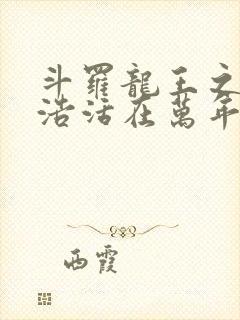 斗羅龍王之
浩活在萬年
西霞